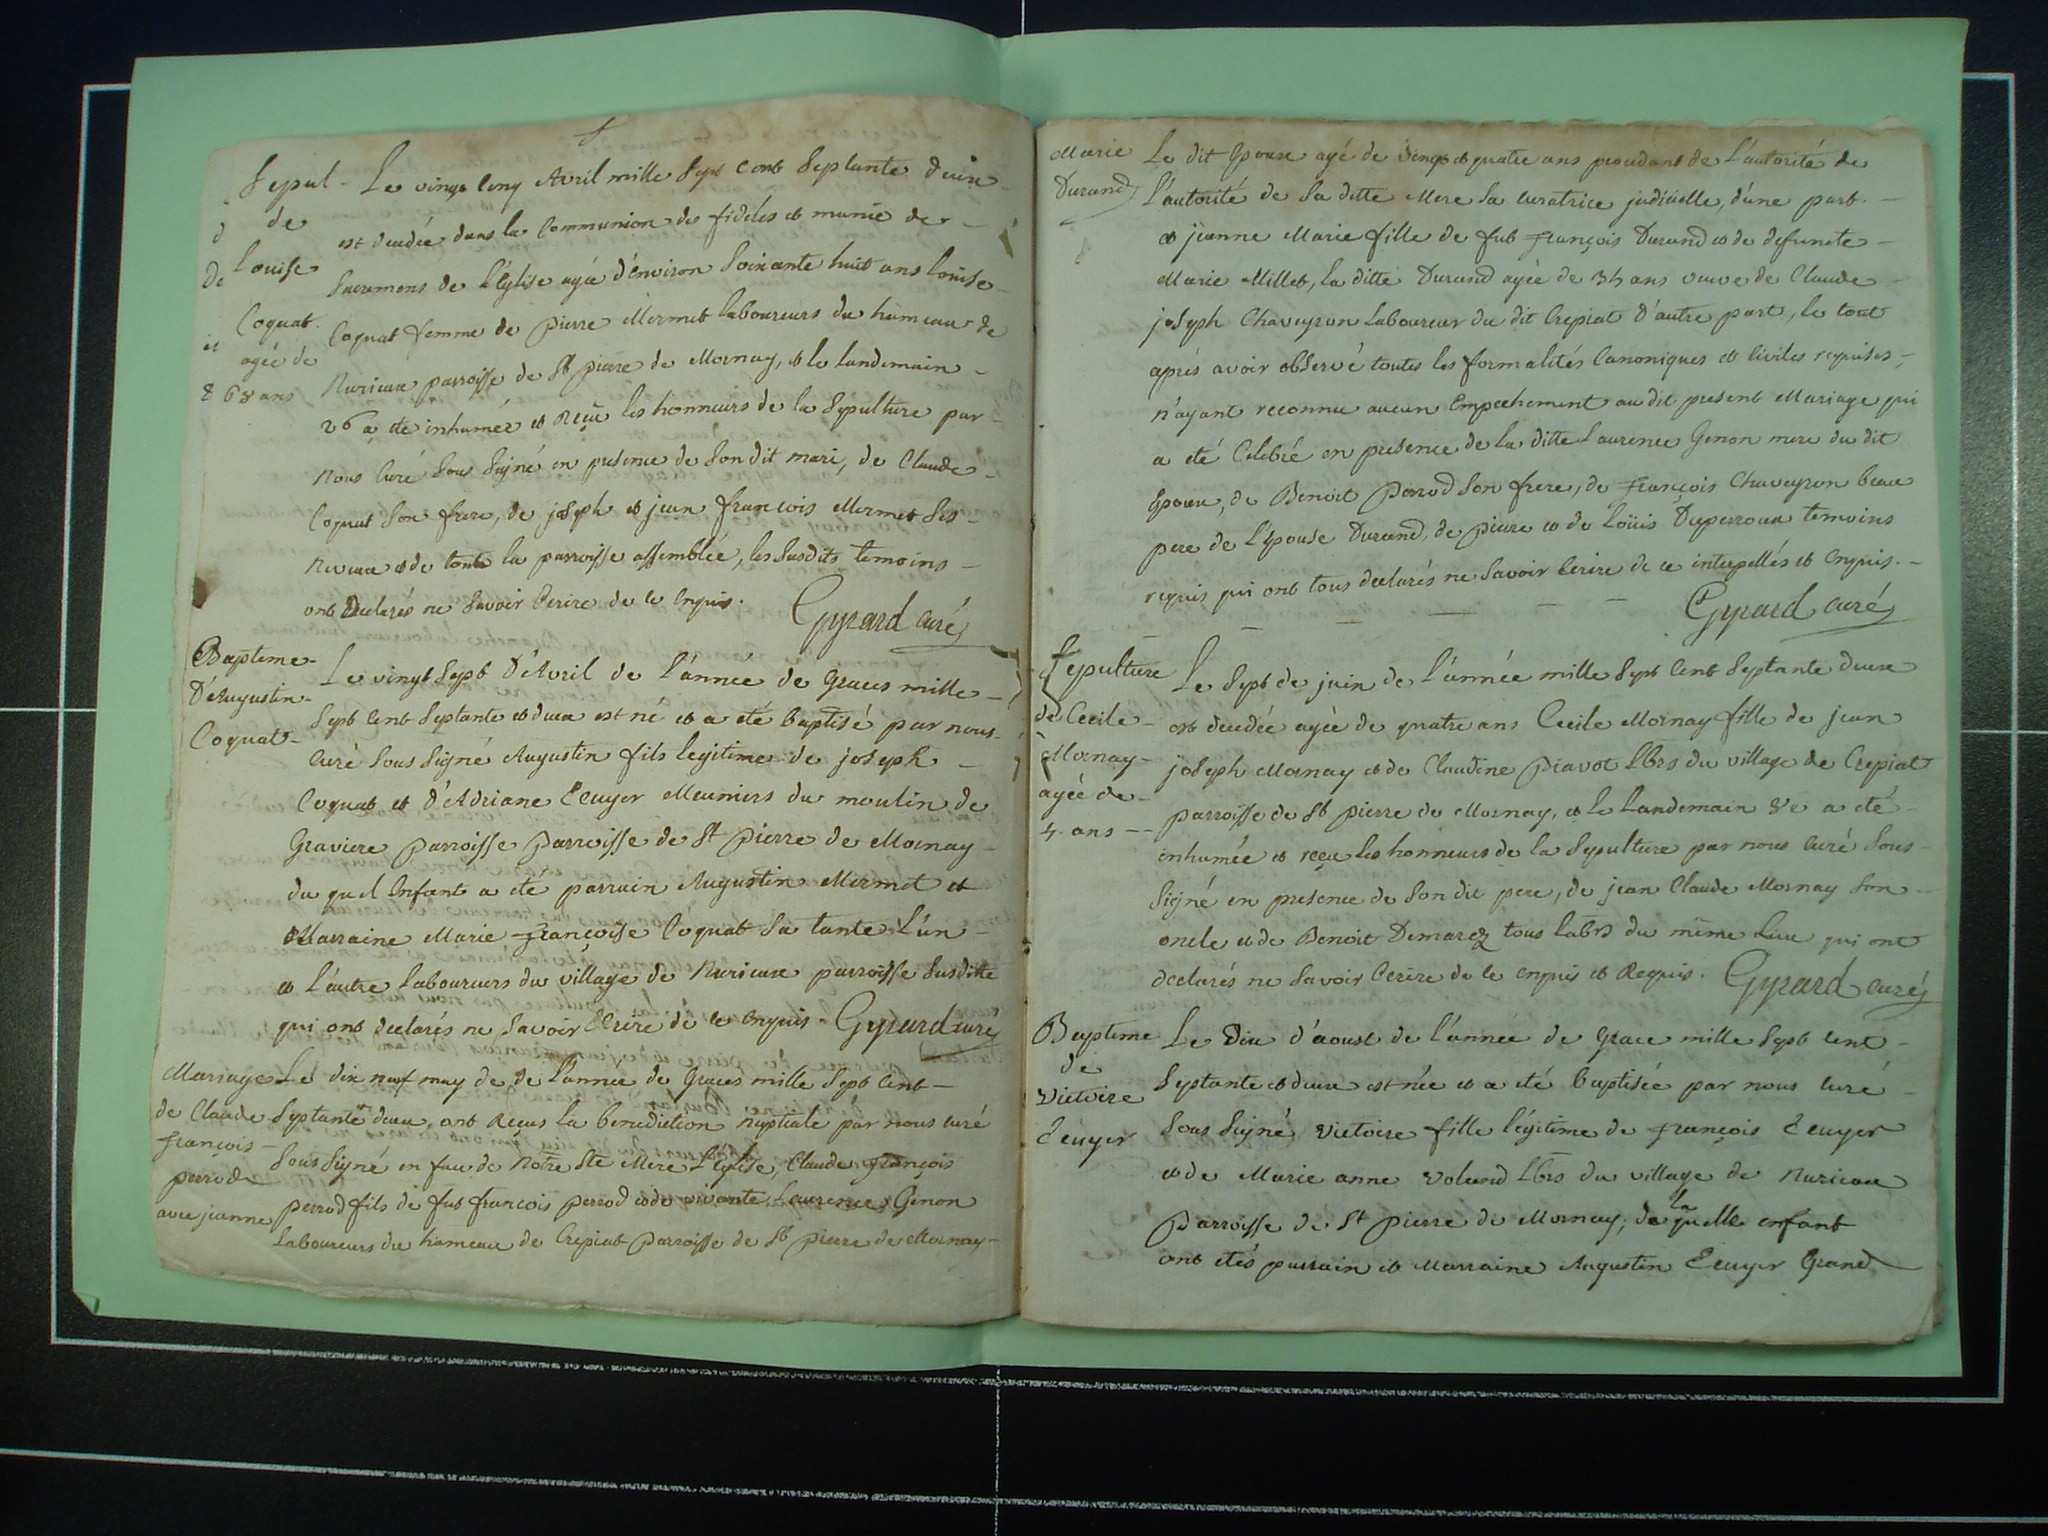 Sepul-
de
Louise
Coquat.
agée de
68 ans
Le vingt cinq Avril mille Sept Cent Septante deux
est decedée dans la Communion des fideles et munie des
Sacremens de L'Eglise agée d'environ Soixante huit ans Louise
Coquat femme de pierre Mermet laboureurs du hameau de
Nurieux parroisse de St pierre de Mornay, et le landemain
26 a eté inhumée et Reçue les honneurs de la Sepulture par
nous Curé Sous Signé en presence de Son dit mari, de Claude
Coquat Son frere, de joseph et jean francois Mermet Ses
neveux et de toute la parroisse assemblée, les Susdits temoins
ont declarés ne Savoir Ecrire de ce enquis. Gyrard curé
Bapteme
D'Augustin
Coquat
Le vingt Sept D'Avril de L'année de Graces mille
Sept Cent Septante et deux est né et a eté baptisé par nous
Curé Sous Signé Augustin fils legitime de joseph
Coquat et D'Adriane Ecuyer Meuniers du moulin de
Graviere Parroisse Parroisse de St Pierre de Mornay
du quel Enfant a eté parrain Augustin Mermet et
Marraine Marie Françoise Coquat Sa tante L'un
et L'autre Laboureurs du village de Nurieux parroisse Susditte
qui ont declarés ne Savoir Ecrire de ce enquis Gyrard curé
Mariage
de Claude
François
perrod
avec jeanne
Le dix neuf may de de L'annee de Graces mille Sept Cent
Septante et deux, ont Reçus la benediction nuptiale par nous curé
Sous Signé en face de Notre Ste Mere L'Eglise, Claude françois
perrod fils de fut francois perrod et de vivante Laurence Genon
Laboureurs du hameau de Crepiat Parroisse de St pierre de Mornay
Marie
Durand
Le dit Epoux agé de vingt et quatre ans procedant de L'autorité de
L'autorité de Sa ditte Mere Sa curatrice judicielle, d'une part.
et jeanne Marie fille de fut françois Durand et de defuncte
Marie Millet, la ditte Durand agée de 34 ans veuve de Claude
joseph Chaveyron Laboureur du dit Crepiat D'autre part, le tout
aprés avoir observé toutes les formalités Canoniques et Civiles requises,
n'ayant reconnu aucun Empechement au dit present Mariage qui
a eté Celebré en presence de la ditte Laurence Genon mere du dit
Epoux, de Benoit Perrod Son frere, de François Chaveyron beau
pere de L'Epouse Durand, de pierre et de Loüis Duperroux temoins
requis qui ont tous declarés ne Savoir Ecrire de ce interpellés et enquis.
Gyrard curé
Sepulture
de Cecile
Mornay
agée de
4 ans
Le Sept de juin de L'année mille Sept Cent Septante deux
est decedée agée de quatre ans Cecile Mornay fille de jean
joseph Mornay et de Claudine Pravot Lbrs du village de Crepiat
parroisse de St pierre de Mornay, et le Landemain 8e a eté
inhumée et reçu les honneurs de la Sepulture par nous Curé Sous
Signé en presence de Son dit pere, de jean Claude Mornay Son
oncle et de Benoit Demarez tous Labrs du même Lieu qui ont
declarés ne Savoir Ecrire de ce enquis et Requis. Gyrard curé
Bapteme
de
Victoire
Ecuyer
Le Dix d'aoust de L'année de Grace mille Sept Cent
Septante et deux est née et a eté baptisée par nous Curé
Sous Signé Victoire fille légitime de François Ecuyer
et de Marie anne Voland Lbrs du village de Nurieux
Parroisse de St pierre de Mornay; de la quelle enfant
ont etés parrain et Marraine Augustin Ecuyer Grand